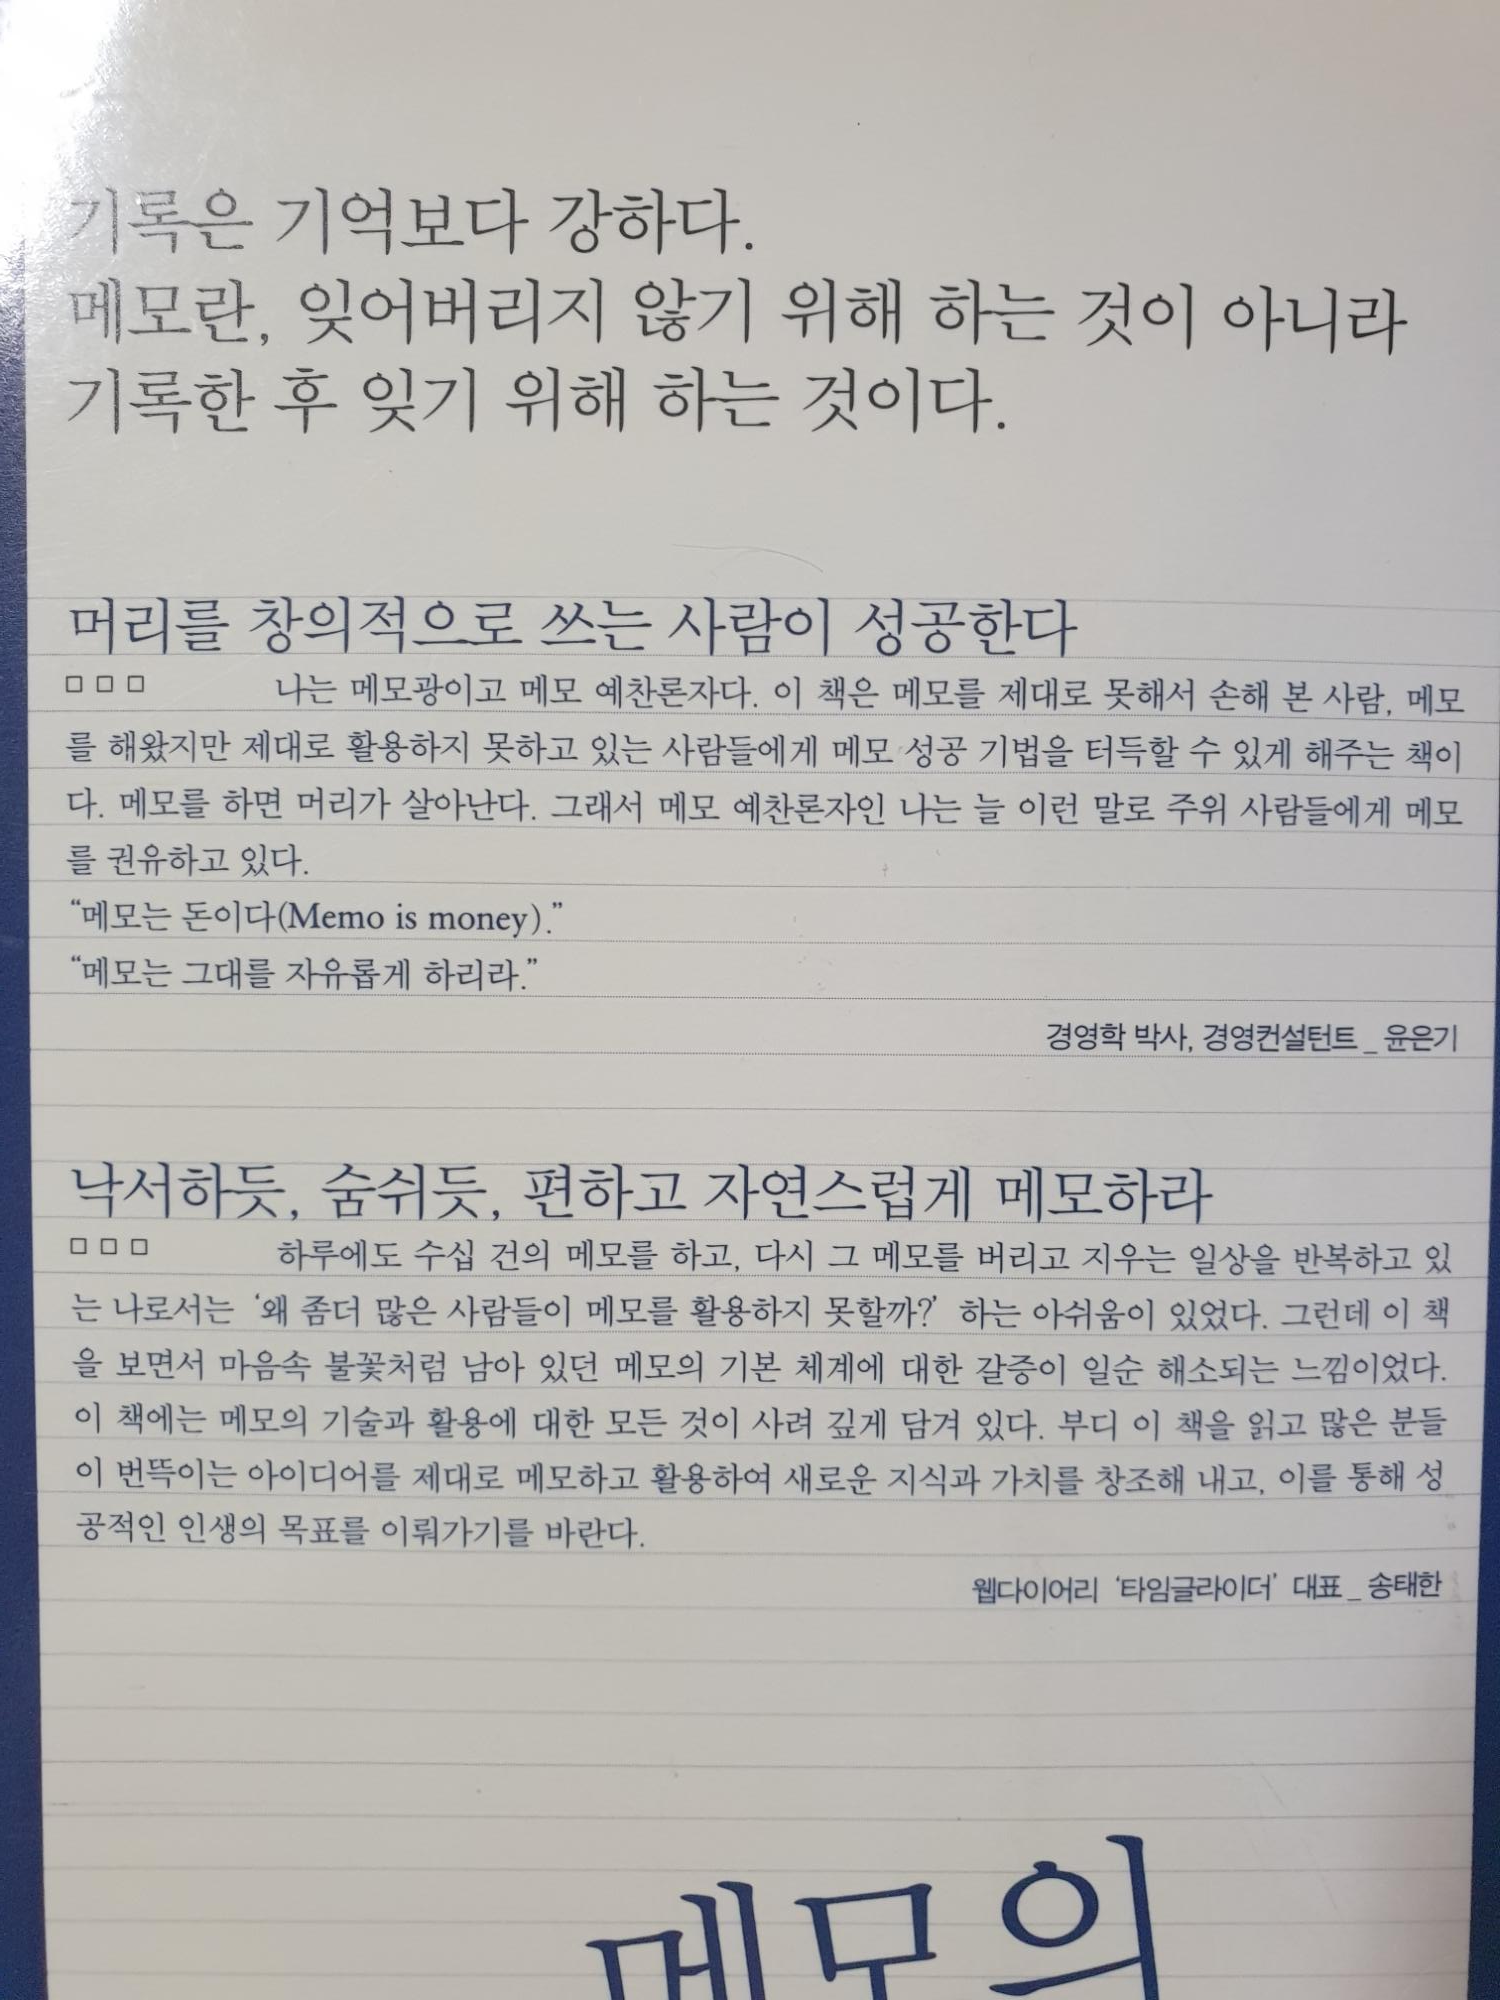 기록은 기억보다 강하다.
메모란, 잊어버리지 않기 위해 하는 것이 아니라
기록한 후 잊기 위해 하는 것이다.
머리를 창의적으로 쓰는 사람이 성공한다
□ □ □ 나는 메모광이고 메모 예찬론자다. 이 책은 메모를 제대로 못해서 손해 본 사람, 메모
를 해왔지만 제대로 활용하지 못하고 있는 사람들에게 메모 성공 기법을 터득할 수 있게 해주는 책이
다. 메모를 하면 머리가 살아난다. 그래서 메모 예찬론자인 나는 늘 이런 말로 주위 사람들에게 메모
를 권유하고 있다.
“메모는 돈이다(Memo is money).”
“메모는 그대를 자유롭게 하리라.”
경영학 박사, 경영컨설턴트 _ 윤은기
낙서하듯, 숨쉬듯, 편하고 자연스럽게 메모하라
□ □ □ 하루에도 수십 건의 메모를 하고, 다시 그 메모를 버리고 지우는 일상을 반복하고 있
는 나로서는 ‘왜 좀더 많은 사람들이 메모를 활용하지 못할까?’ 하는 아쉬움이 있었다. 그런데 이 책
을 보면서 마음속 불꽃처럼 남아 있던 메모의 기본 체계에 대한 갈증이 일순 해소되는 느낌이었다.
이 책에는 메모의 기술과 활용에 대한 모든 것이 사려 깊게 담겨 있다. 부디 이 책을 읽고 많은 분들
이 번뜩이는 아이디어를 제대로 메모하고 활용하여 새로운 지식과 가치를 창조해 내고, 이를 통해 성
공적인 인생의 목표를 이뤄가기를 바란다.
웹다이어리 ‘타임글라이더’ 대표 _ 송태한
메모의